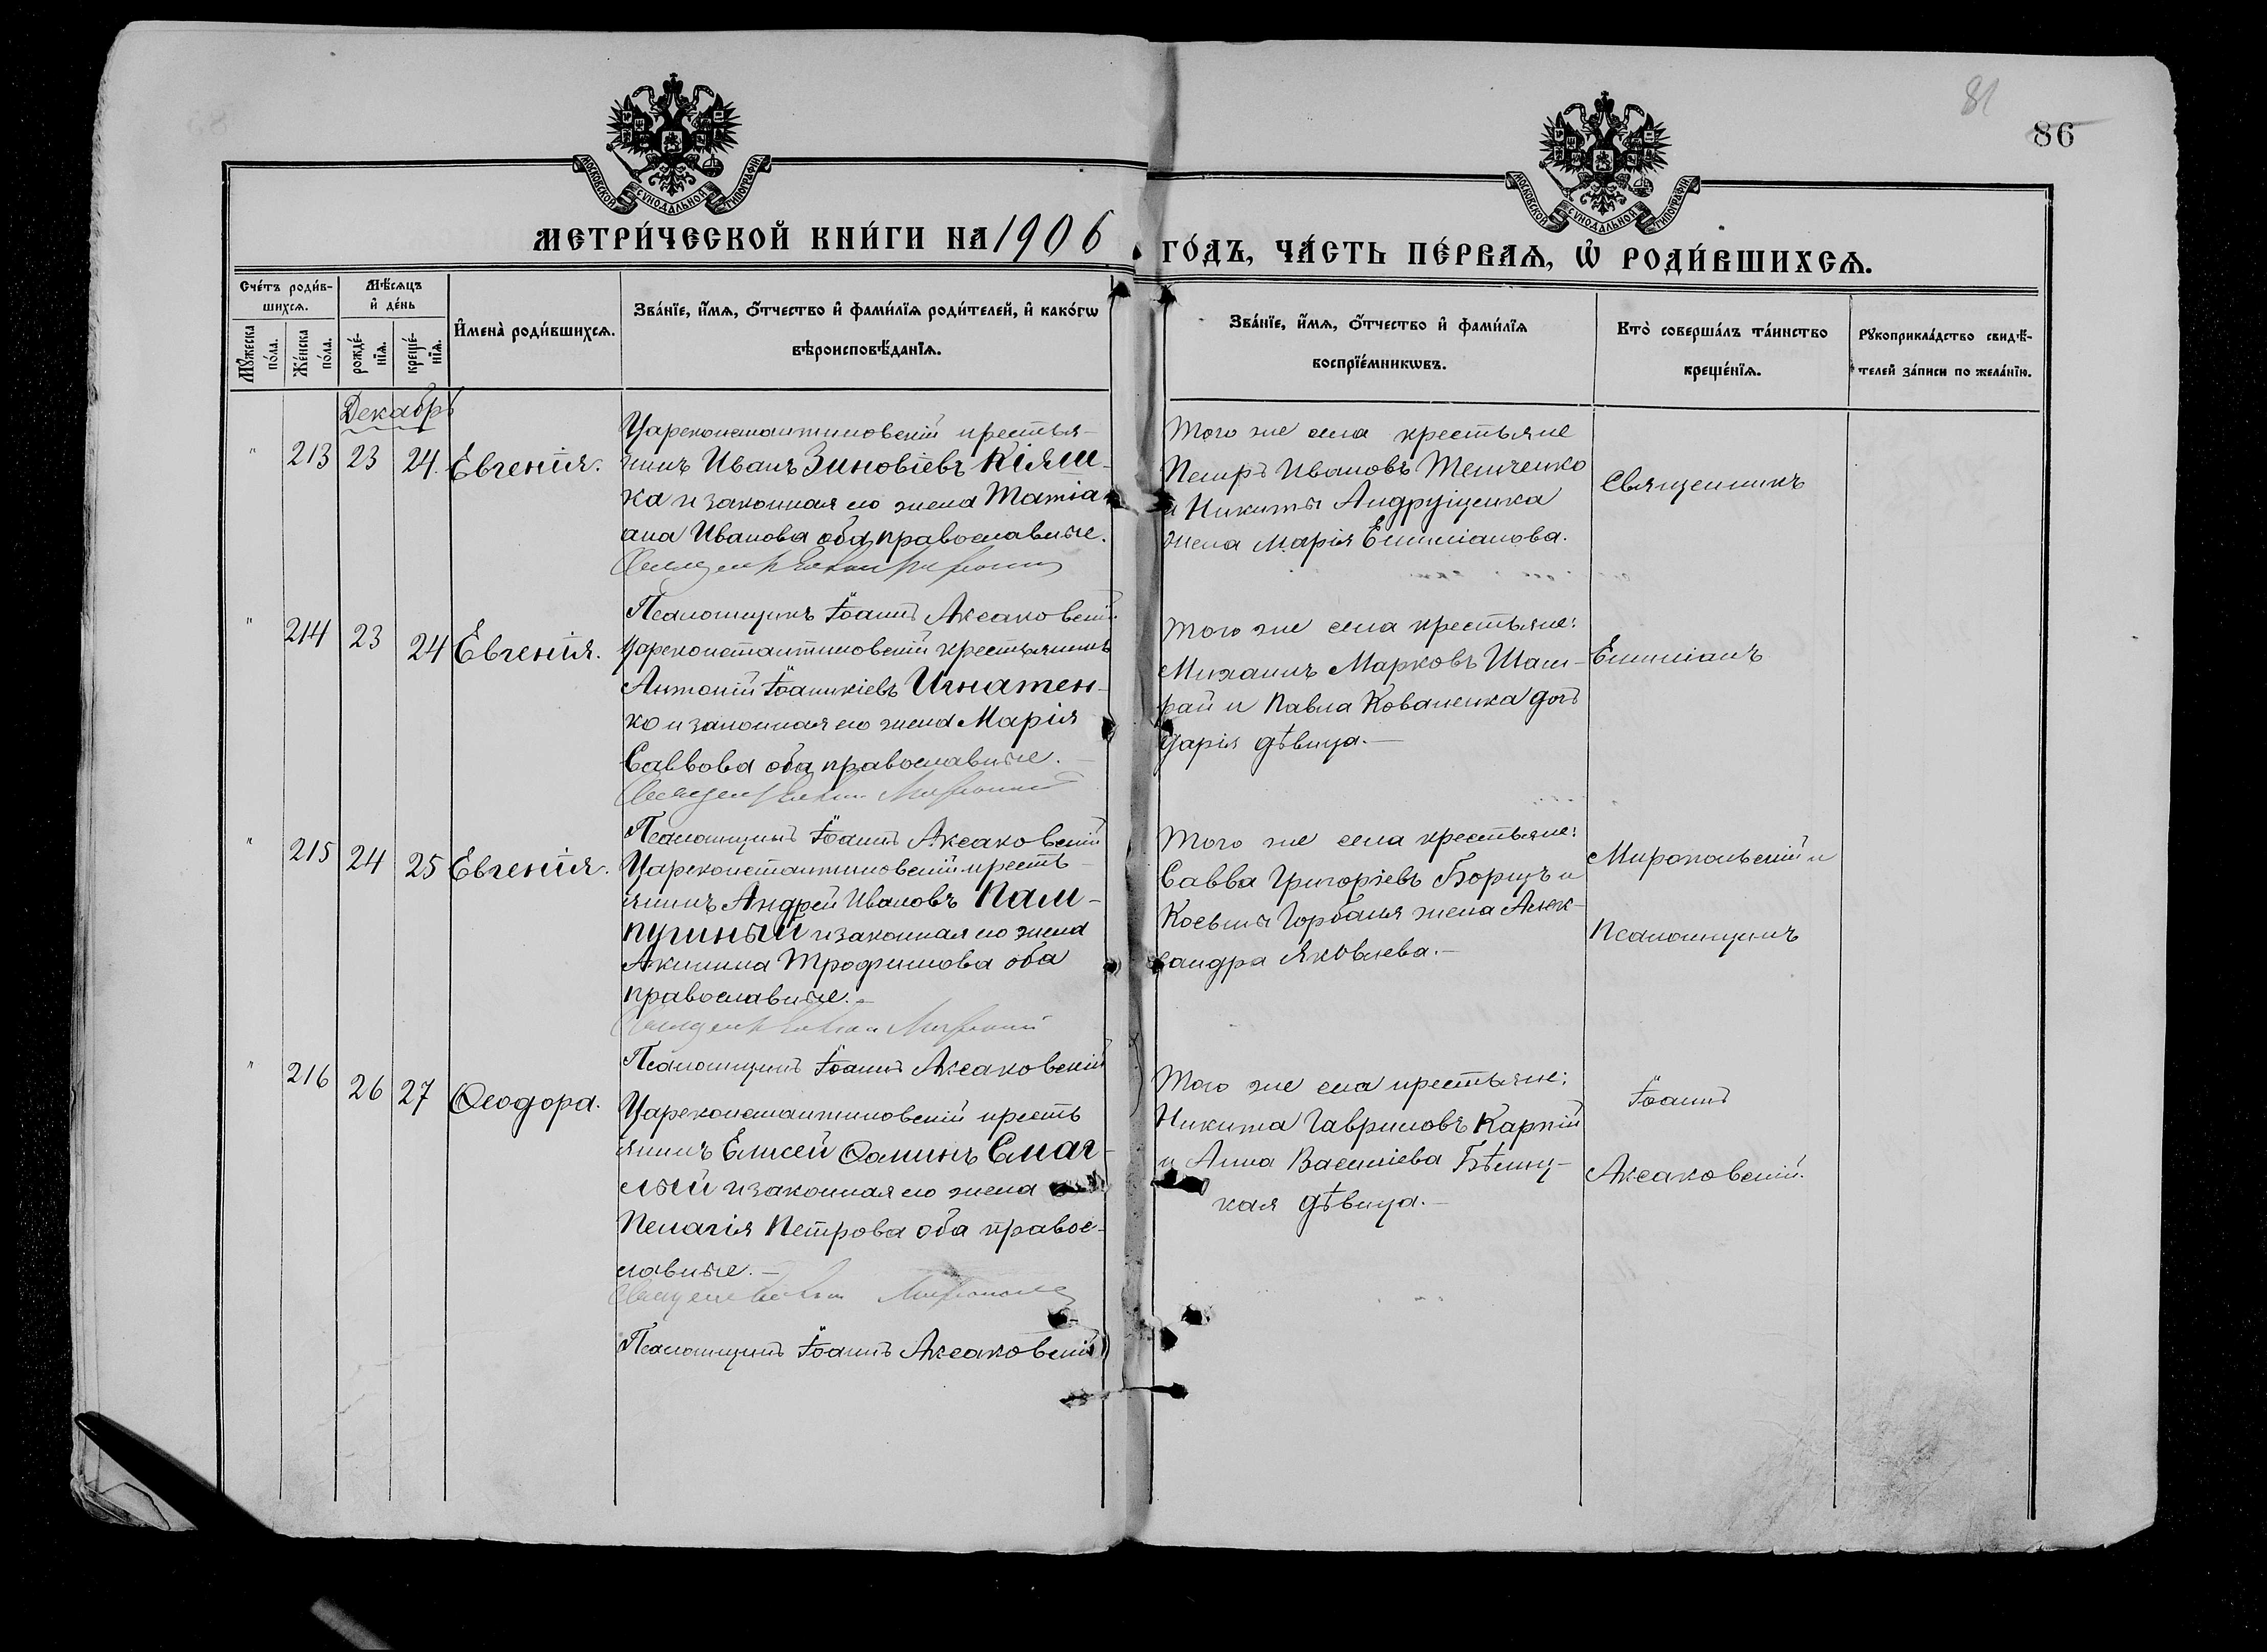 81
86
МОСКОВСКОЙ СѴНОДАЛЬНОЙ ТИПОГРАФІИ
МОСКОВСКОЙ СѴНОДАЛЬНОЙ ТИПОГРАФІИ
МЕТРИ́ЧЕСКОЙ КНИ́ГИ НА 1906 ГО́ДЪ, ЧА́СТЬ ПЕ́РВАѦ, Ѡ҆ РОДИ́ВШИХСѦ.
Сче́тъ роди́в-
шихсѧ.
Мѣ́сѧцъ
и҆ де́нь
Мꙋ́жеска
по́ла.
Же́нска
по́ла.
рожде́-
нїѧ.
креще́-
нїѧ.
И҆мена̀ роди́вшихсѧ.
Зва́нїе, и҆́мѧ, ѻ҆́тчество и҆ фами́лїѧ роди́телей, и҆ како́гѡ
вѣроисповѣ́данїѧ.
Зва́нїе, и҆́мѧ, ѻ҆́тчество и҆ фами́лїѧ
воспрїе́мникѡвъ.
Кто̀ соверша́лъ та́инство
креще́нїѧ.
Рꙋкоприкла́дство свидѣ́-
телей за́писи по жела́нїю.
Декабрь
" 213 23 24. Евгенія.
Цареконстантиновскій крестья-
нинъ Иванъ Зиновіевъ Кіяш-
ка и законная его жена Татіа
ана Иванова оба православные.
Псаломщикъ Іоаннъ Аксаковскій
Того же села крестьяне
Петръ Ивановъ Темченко
и Никиты Андрущенка
жена Марія Емиліанова.
Священникъ
" 214 23 24 Евгенія.
Цареконстантиновскій крестьянинъ
Антоній Іоанникіевъ Игнатен-
ко и законная его жена Марія
Саввова оба православные.
Псаломщикъ Іоаннъ Аксаковскій
Того же села крестьяне:
Михаилъ Марковъ Шам-
рай и Павла Коваленка дочь
Дарія дѣвица.—
Емиліанъ
" 215 24 25 Евгенія.
Цареконстантиновскій кресть-
янинъ Андрей Ивановъ Пам-
пушный и законная его жена
Акилина Трофимова оба
православные.—
Псаломщикъ Іоаннъ Аксаковскій
Того же села крестьяне:
Савва Григоріевъ Борщъ и
Косьмы Горбаня жена Алек-
сандра Яковлева.—
Миропольскій и
Псаломщикъ
" 216 26 27 Ѳеодора.
Цареконстантиновскій кресть
янинъ Елисей Ѳоминъ Смаг-
лый и законная его жена
Пелагія Петрова оба правос-
лавные.—
Псаломщикъ Іоаннъ Аксаковскій
Того же села крестьяне:
Никита Гавриловъ Карпій
и Анна Василіева Бѣлиц-
кая дѣвица.—
Іоаннъ
Аксаковскій.